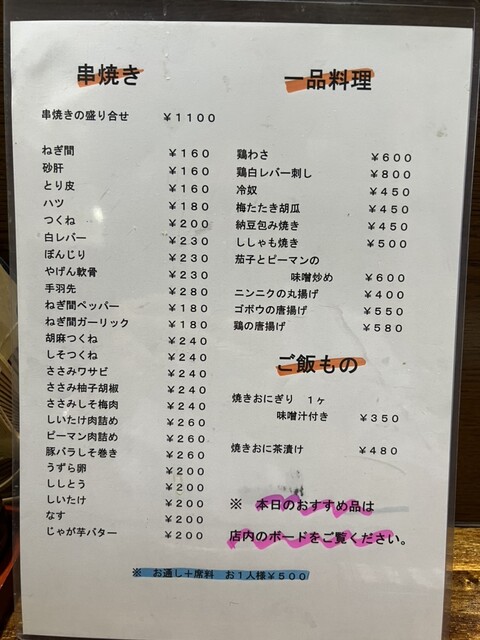 串焼き
串焼きの盛り合せ ￥１１００
ねぎ間 ￥１６０
砂肝 ￥１６０
とり皮 ￥１６０
ハツ ￥１８０
つくね ￥２００
白レバー ￥２３０
ぼんじり ￥２３０
やげん軟骨 ￥２３０
手羽先 ￥２８０
ねぎ間ペッパー ￥１８０
ねぎ間ガーリック ￥１８０
胡麻つくね ￥２４０
しそつくね ￥２４０
ささみワサビ ￥２４０
ささみ柚子胡椒 ￥２４０
ささみしそ梅肉 ￥２４０
しいたけ肉詰め ￥２６０
ピーマン肉詰め ￥２６０
豚バラしそ巻き ￥２６０
うずら卵 ￥２００
ししとう ￥２００
しいたけ ￥２００
なす ￥２００
じゃが芋バター ￥２００
一品料理
鶏わさ ￥６００
鶏白レバー刺し ￥８００
冷奴 ￥４５０
梅たたき胡瓜 ￥４５０
納豆包み焼き ￥４５０
ししゃも焼き ￥５００
茄子とピーマンの
味噌炒め ￥６００
ニンニクの丸揚げ ￥４００
ゴボウの唐揚げ ￥５５０
鶏の唐揚げ ￥５８０
ご飯もの
焼きおにぎり １ヶ
味噌汁付き ￥３５０
焼きおに茶漬け ￥４８０
※ 本日のおすすめ品は
店内のボードをご覧ください。
※ お通し＋席料 お１人様￥５００